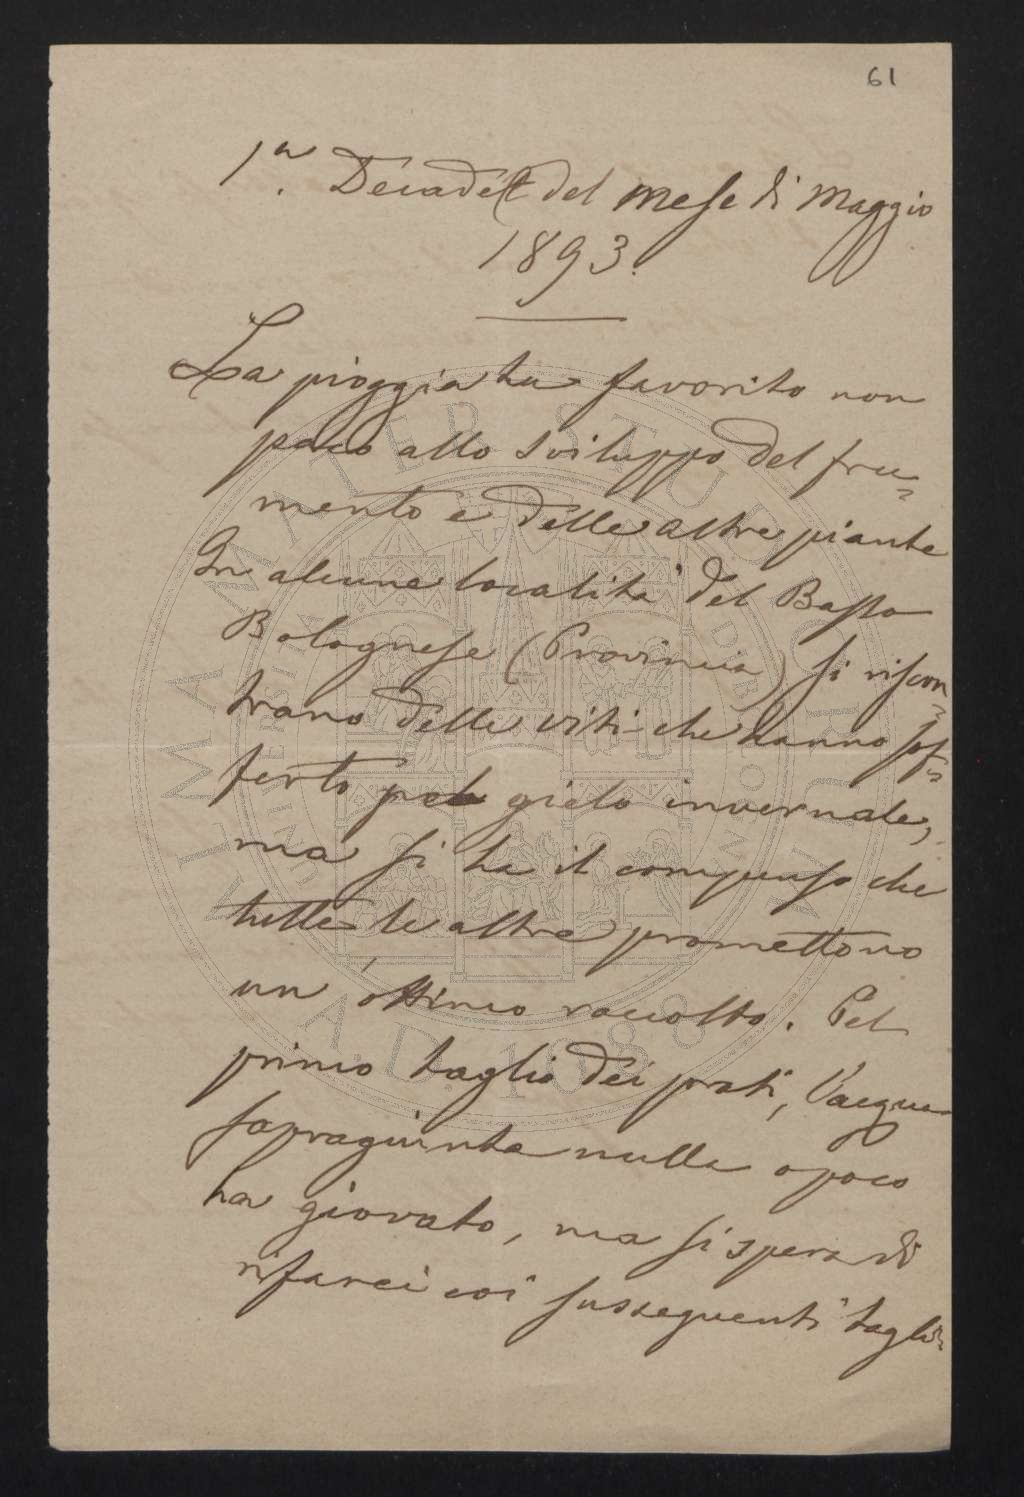 61
1ª. Decade del mese di Maggio
1893.
La pioggia ha favorito non
poco allo sviluppo del fru=
mento e delle altre piante
In alcune località del Basso
Bolognese (Provincia) si riscon=
trano delle viti che hanno sof=
ferto pel gielo invernale,
ma si ha il compenso che
tutte le altre promettono
un ottimo raccolto. Pel
primo taglio dei prati, l'acqua
sopragiunta nulla o poco
ha giovato, ma si spera di
rifarci coi susseguenti tagli.
ALMA MATER STUDIORUM
A.D. 1088